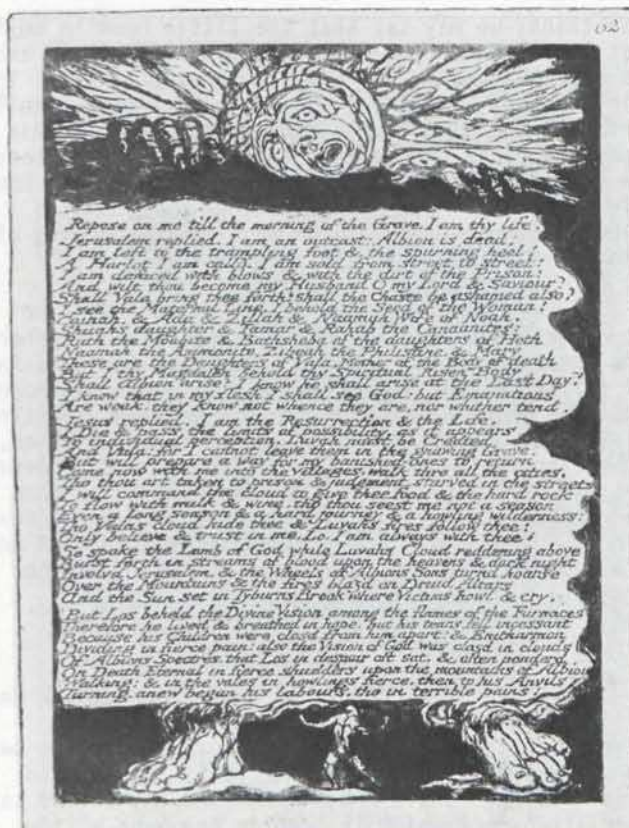 62
Repose on me till the morning of the Grave. I am thy life.
Jerusalem replied. I am an outcast: Albion is dead!
I am left to the trampling foot & the spurning heel!
A Harlot I am calld. I am sold from street to street!
I am defaced with blows & with the dirt of the Prison!
And wilt thou become my Husband O my Lord & Saviour?
Shall Vala bring thee forth! shall the Chaste be ashamed also?
I see the Maternal Line, I behold the Seed of the Woman!
Cainah, & Ada & Zillah & Naamah Wife of Noah.
Shuahs daughter & Tamar & Rahab the Canaanites:
Ruth the Moabite & Bathsheba of the daughters of Heth
Naamah the Ammonite, Zibeah the Philistine, & Mary
These are the Daughters of Vala, Mother of the Body of death
But I thy Magdalen behold thy Spiritual Risen Body
Shall Albion arise? I know he shall arise at the Last Day!
I know that in my flesh I shall see God: but Emanations
Are weak. they know not whence they are, nor whither tend.
Jesus replied. I am the Resurrection & the Life.
I Die & pass the limits of possibility, as it appears
To individual perception. Luvah must be Created
And Vala; for I cannot leave them in the gnawing Grave.
But will prepare a way for my banished-ones to return
Come now with me into the villages. walk thro all the cities.
Tho thou art taken to prison & judgment, starved in the streets
I will command the cloud to give thee food & the hard rock
To flow with milk & wine, tho thou seest me not a season
Even a long season & a hard journey & a howling wilderness!
Tho Valas cloud hide thee & Luvahs fires follow thee!
Only believe & trust in me, Lo. I am always with thee!
So spoke the Lamb of God while Luvahs Cloud reddening above
Burst forth in streams of blood upon the heavens & dark night
Involvd Jerusalem. & the Wheels of Albions Sons turnd hoarse
Over the Mountains & the fires blazd on Druid Altars
And the Sun set in Tyburns Brook where Victims howl & cry.
But Los beheld the Divine Vision among the flames of the Furnaces
Therefore he lived & breathed in hope. but his tears fell incessant
Because his Children were closd from him apart: & Enitharmon
Dividing in fierce pain: also the Vision of God was closd in clouds
Of Albions Spectres, that Los in despair oft sat, & often ponderd
On Death Eternal in fierce shudders upon the mountains of Albion
Walking: & in the vales in howlings fierce, then to his Anvils
Turning, anew began his labours, tho in terrible pains!